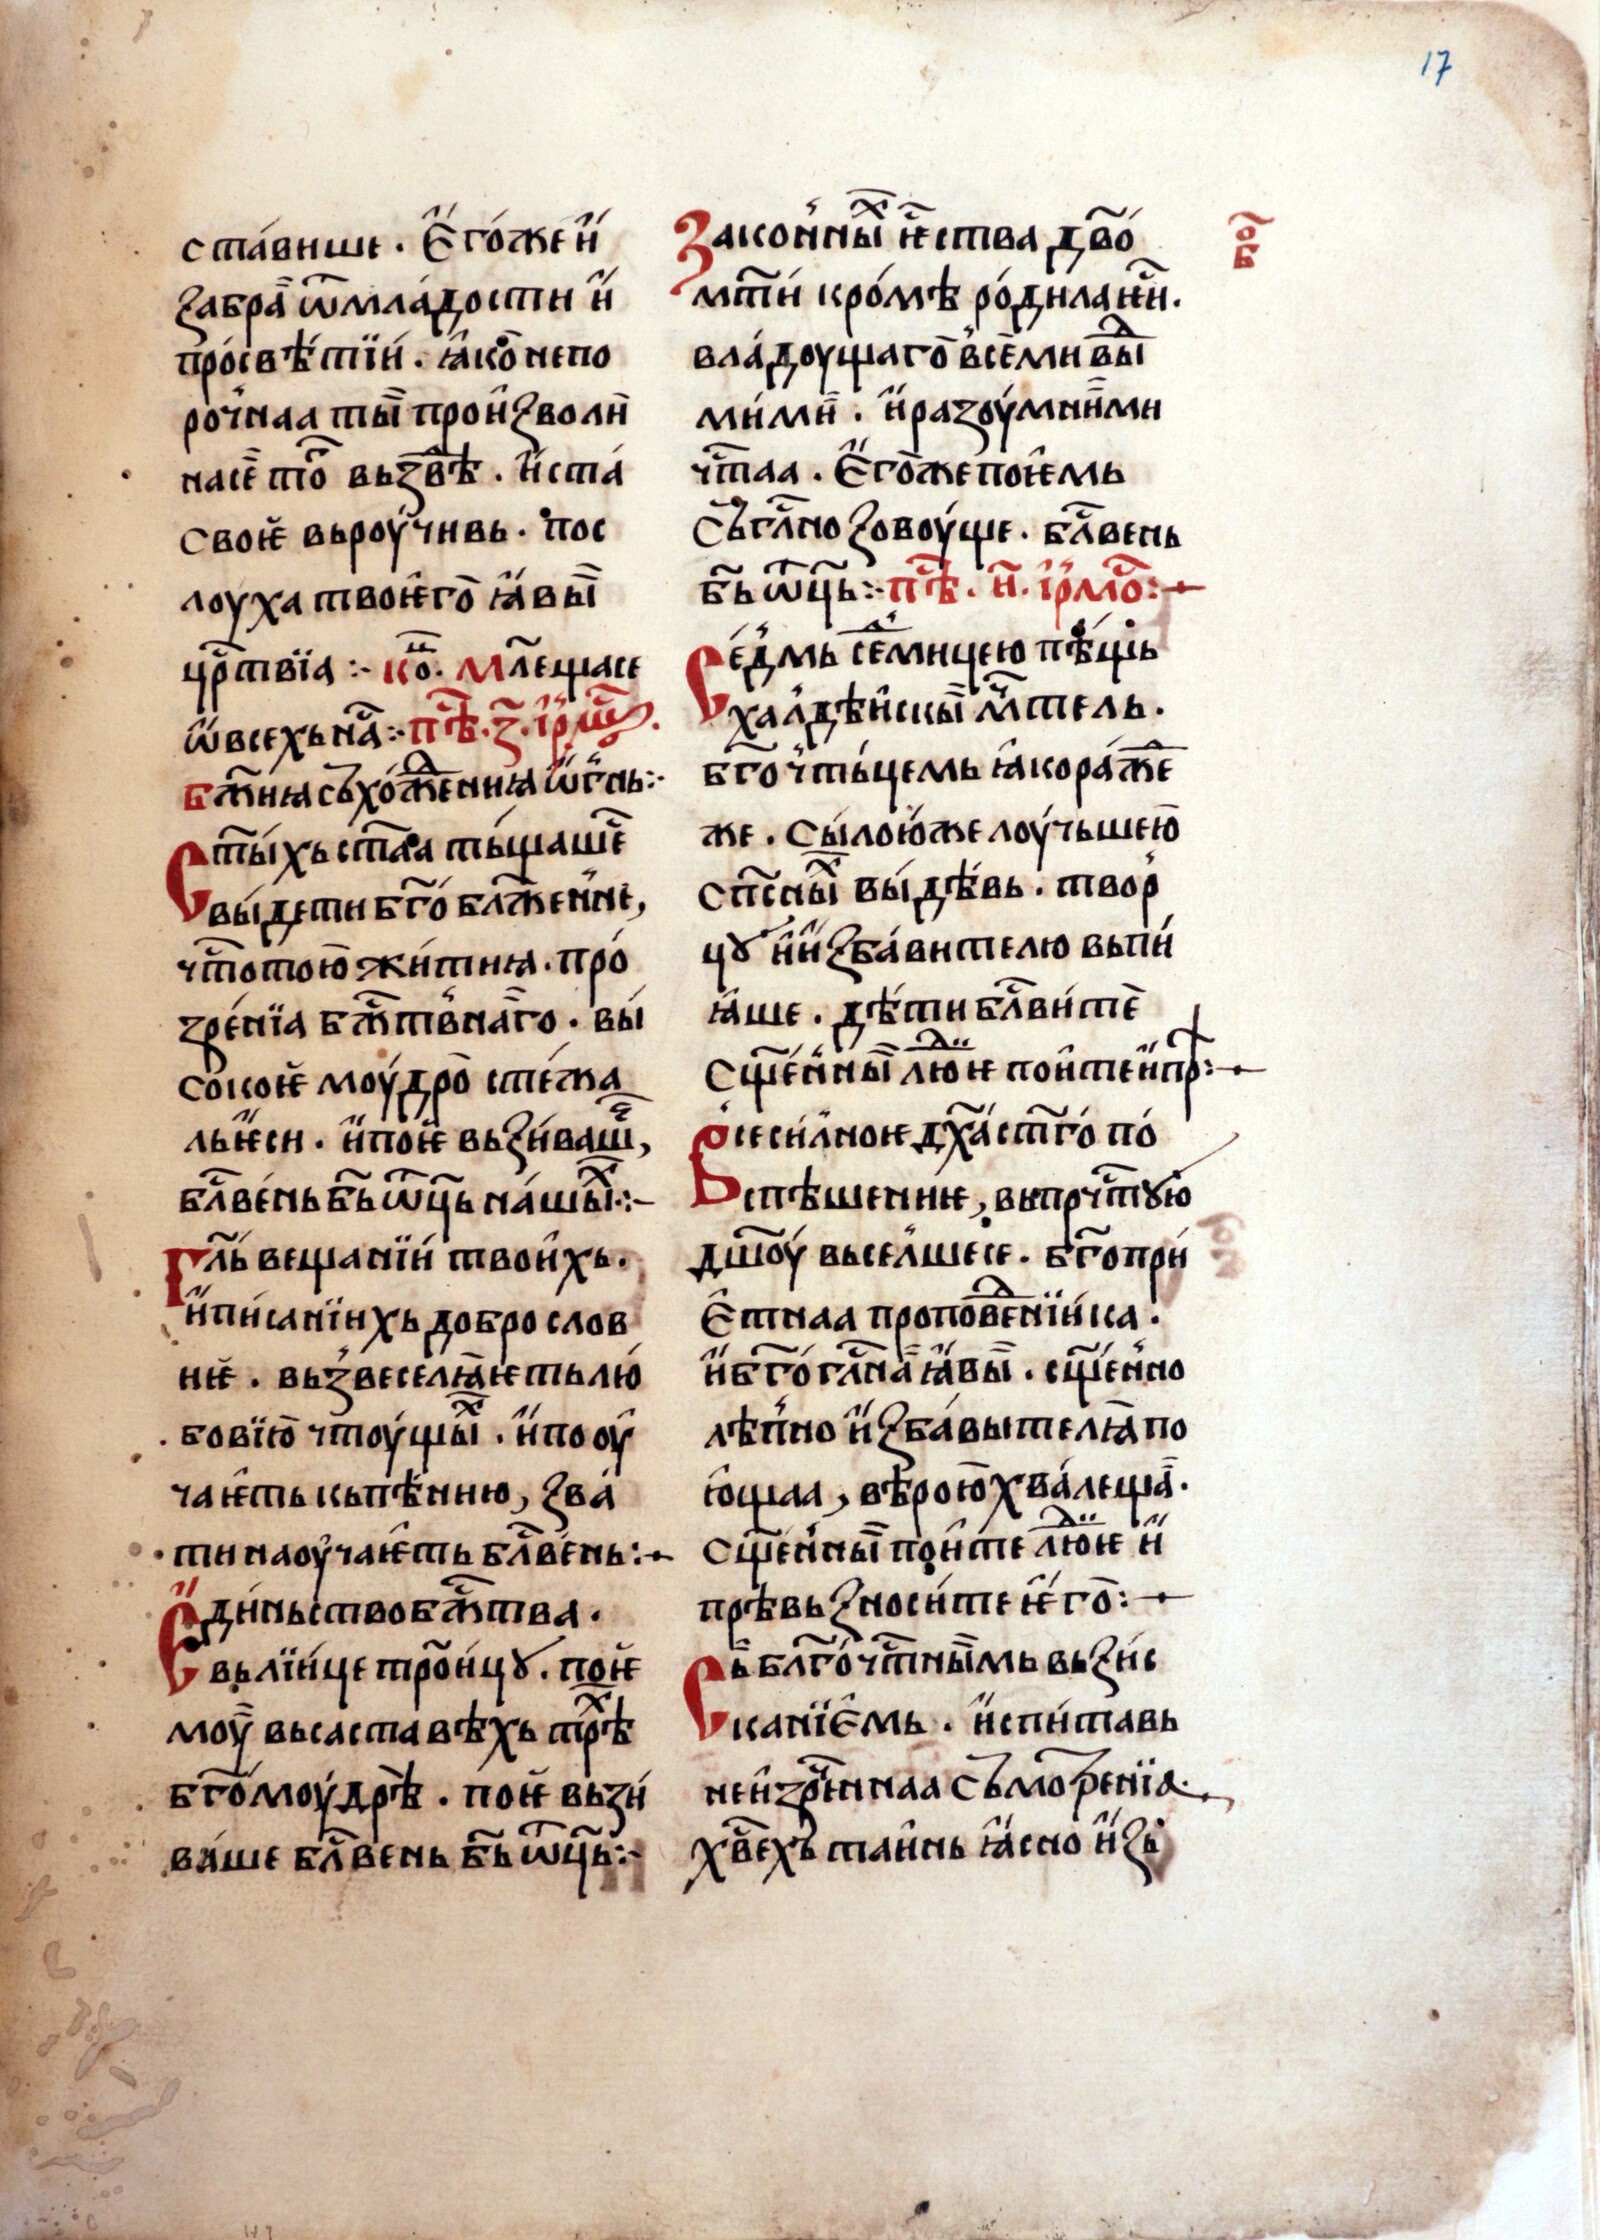 17
ста́више . Е҆го́же и҆
забра̄ ѿмла́дости и҆
про́свѣтїи . ꙗ҆ко̄ непо
рочнаа ты̄ прои҆зволӣ
насе̄ то̄ вьзвѣ . и҆ста́
своѥ вьроу́чивь . пос
лоуха твоѥго̄ ꙗ҆вы̄
црⷭ҇твїа :- ко̄ⷣ. Мл҃ещасе
ѡ҆всехьнⷭ҇а :- пⷭ҇ѣ. з҃. і҆рмѡⷭ҇.
Бжⷭ҇ниꙗ съхо́жⷣениꙗ ѡ҆г҄нь :-
Ст҃ы́хь стⷣаа ты́щашеⷭ҇
вы́дети бг҃о́ бла҃жен҄не,
чⷭ҇тотою̄ жи́тиꙗ . про́
зре́нїа бжⷭ҇тв҄наго . вы́
сокоѥ моу́дро̄ сте́жа
льѥ҆си . и҆поѥ вьзи́вашⷱ,
блⷭ҇ве́нь бь҃ ѿць҃ на́шыⷯ :-
Гл҃ь вещанїи твои҆хь .
и҆пи́санїихь доброслов
нѥ . вьз҄веселꙗ̄ѥть лю́
бовїю̄ чтоу́щыⷯ . и҆пооу҆
чаѥ҆ть кьпѣ́нию, зва́
ти наоу҆чаѥ҆ть блⷭ҇ве́нь :-
Е҆ди́ньство бжⷭ҇тва .
вьлїи́це тро҃и́цꙋ . поѥ
моӯ вьсаставѣ́хь трⷯѣ
бг҃о́моу́дрѣ̄ . поѥ вьзи́
ва́ше блⷭ҇вень бь҃ ѿць҃ :-
Закон҄ныⷯ ѥⷭ҇ства дв҃о́
мт҃и́ кро́мѣ ро́дилаѥⷭ҇и .
вла́доущаго̄ в҄се̄ми выⷣ
ми́мӣ . и҆разоу́мнӣми
чⷭ҇таа . Е҆го̄же поѥ҆мь
Съглⷭ҇но зовоу́ще . блⷭ҇вень
бь҃ ѿць҃ :- пⷭ҇ѣ. и҃. і҆рмⷭ҇о :-
зо҃в
Се́д҄мь сеⷣмицею пѣ́щь
хал҄дѣи҆скы̄ мⷱтель .
бг҃очты́цемь ꙗ҆кора́жⷣе
же . Сы́лою҆же лоу́чьшею̄
сп҃сныⷯ вы́дѣвь . твор҄
цꙋ и҆и҆зба́вителю вьпи́
ꙗ҆ше . дѣ́ти блⷭ҇ви́те̄
сщ҃е́н҄ны̄ люⷣѥ пои҆теи҆пр :-
Всеси́л҄ноѥ дх҃а́ ст҃го́ по́
спѣшениѥ, вьпрⷭ҇чтꙋю
дш҃оу́ вьсел҄шесе . бг҃опри́
е҆тнаа проповеⷣнїи҆иса .
и҆бг҃о́глⷭ҇на̄ ꙗ҆вы̄ . сщ҃е́н҄но
лѣп҄но и҆зба́вытелꙗ̄ по
ю҆щаа, вѣрою̄ хва́леща̄ .
сщ҃е́н҄ны̄ пои҆те люⷣѥ и҆
прѣвьзноси́те ѥ҆го̄ :-
Сь̄ блг҃о́чⷭ҇тны̄мь вьзи́с
канїе҆мь . и҆спи́тавь
неи҆зрⷱе́ннаа съмотре́нїа .
хв҃ехь таи҆нь ꙗ҆сно и҆зь